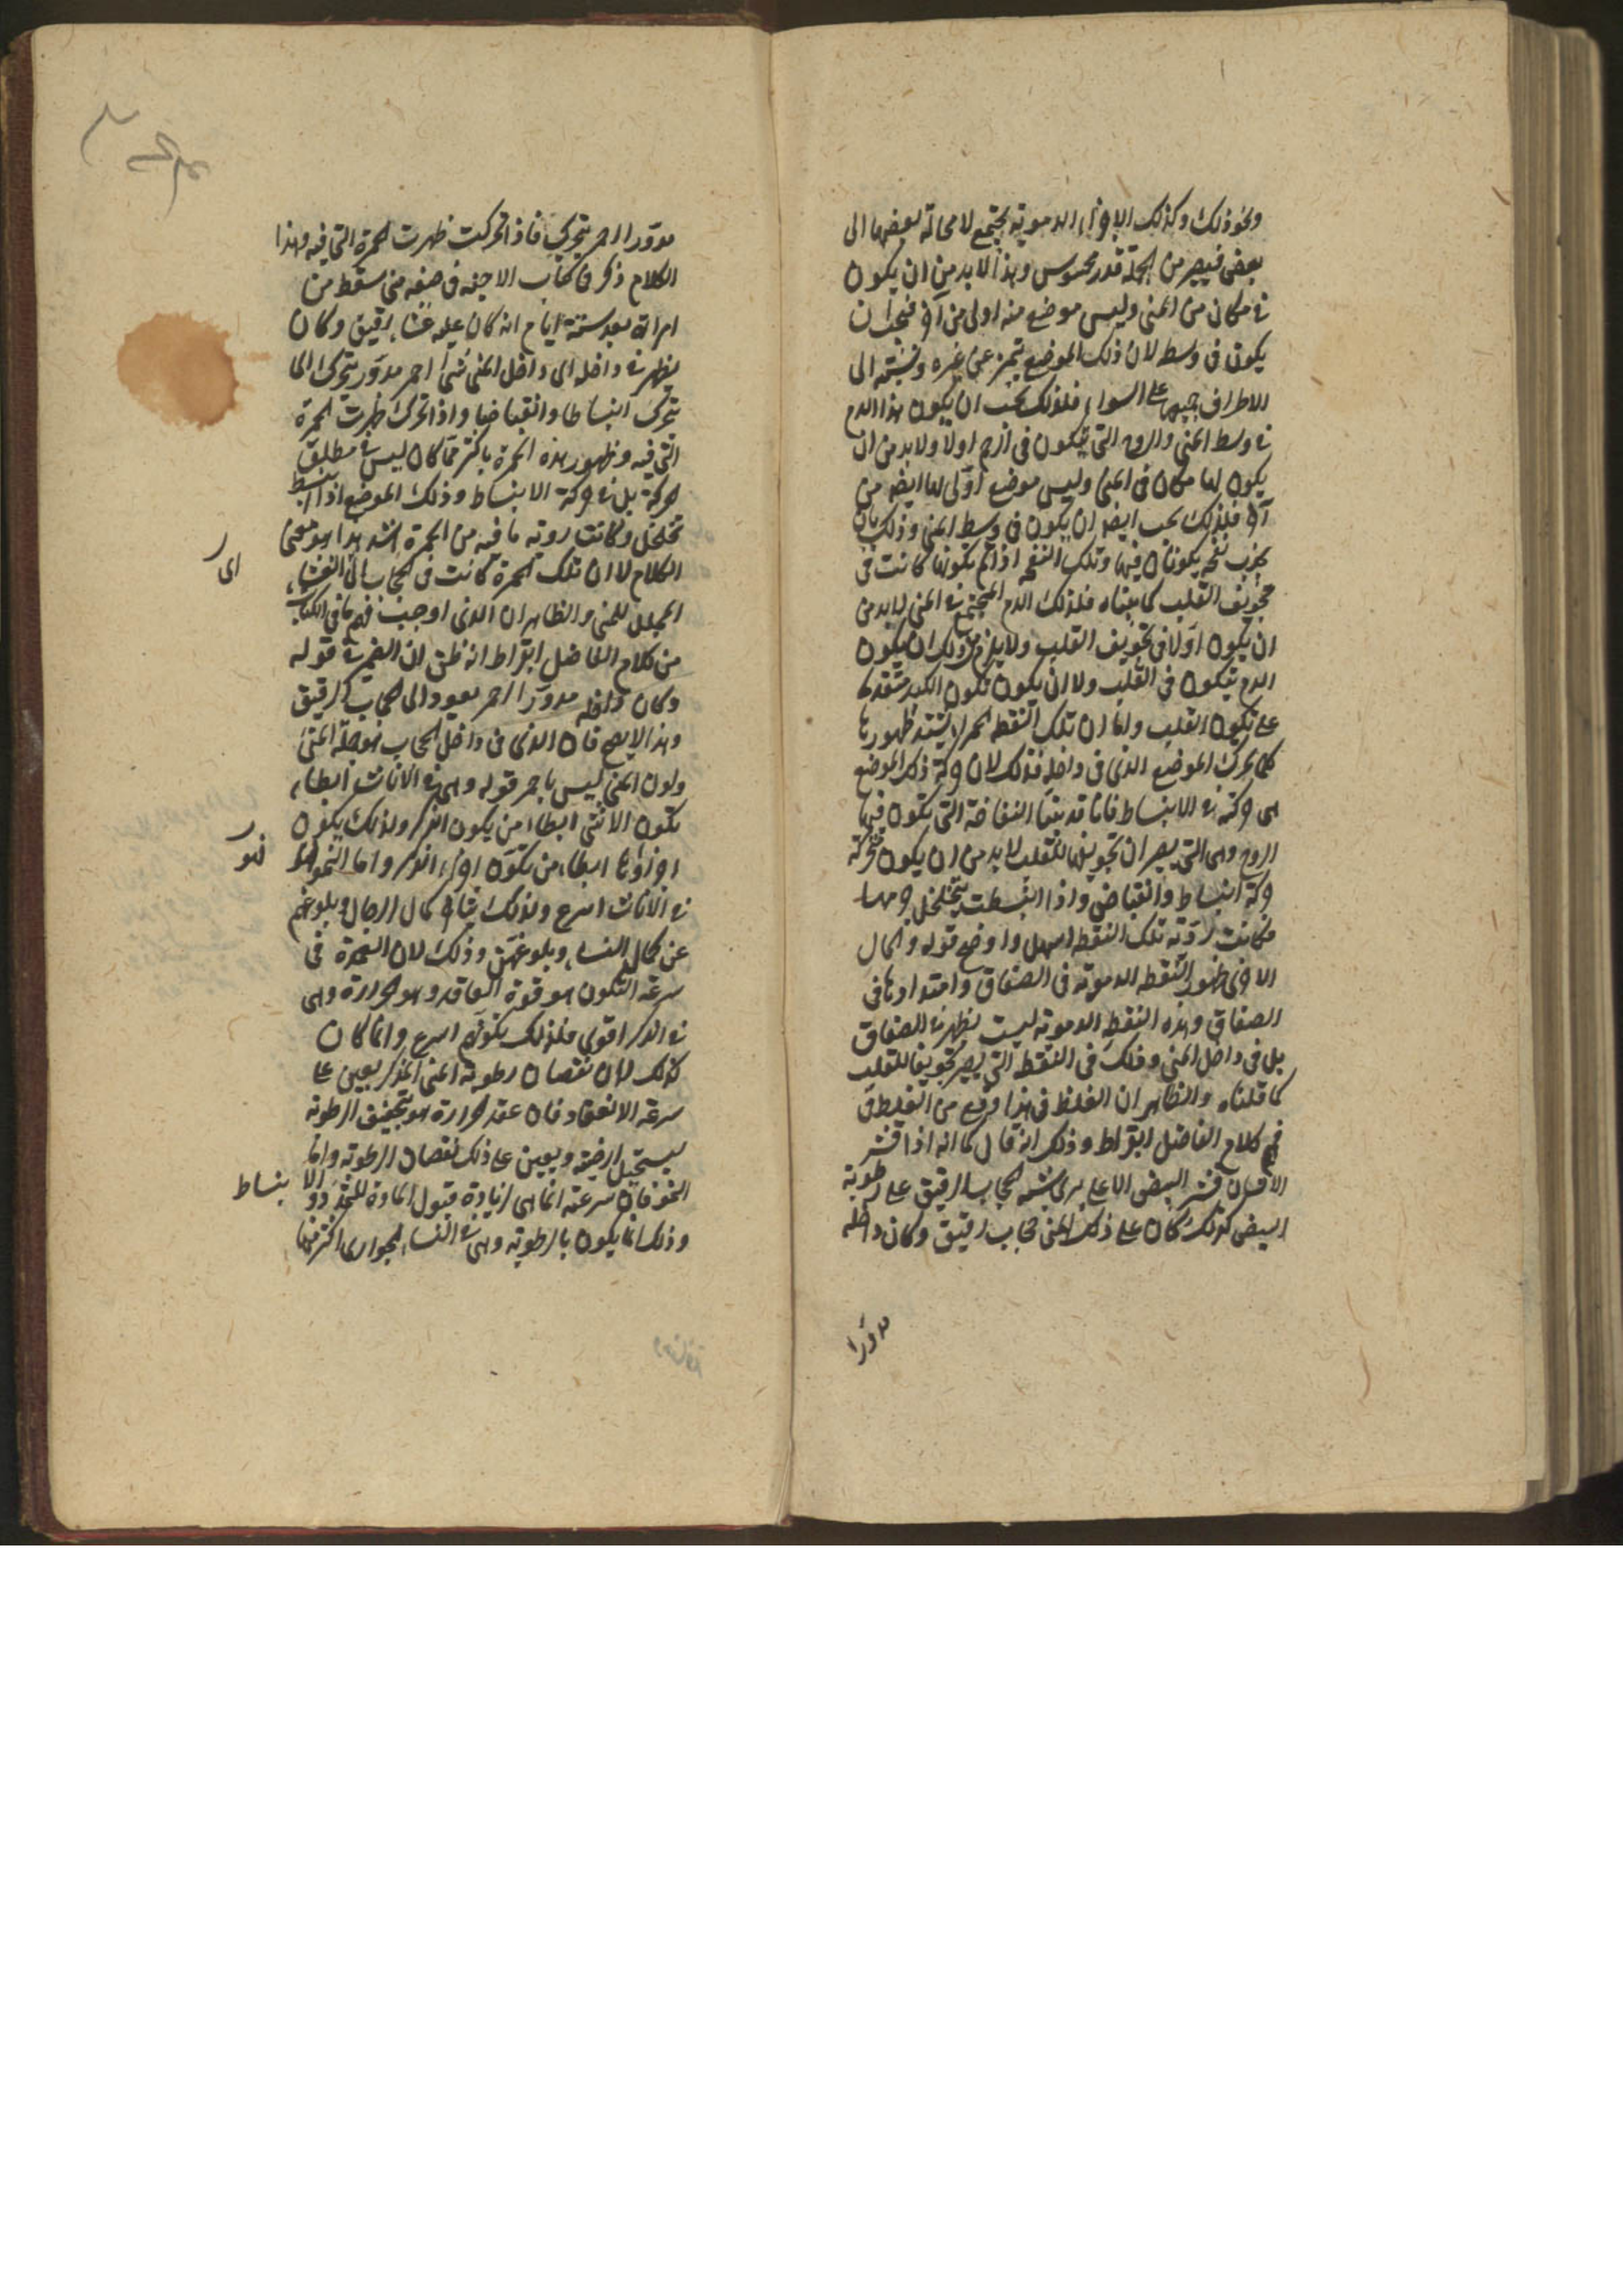 ونحو ذلك وكذلك الاجزاء الدموية يجتمع لا محالة بعضها الى
بعض فيصير من الجملة قدر محسوس وهذا لا بد من ان يكون
في مكان من المنى وليس موضع منه اولى من آخر فيجب ان
يكون في وسط لان ذلك الموضع يتميز عن غيره ونسبته الى
الاطراف جميعها على السواء فلذلك يجب ان يكون هذا الدم
في وسط المنى والروح التي تتكون في الرحم اولا ولا بد من ان
يكون لها مكان في المنى وليس موضع اولى لها ايضا من
آخر فلذلك يجب ايضا ان يكون في وسط المنى وذلك بان
يحدث نفخ يكونان فيها وتلك النفخة اذا تم تكونها كانت هي
تجويف القلب كما بيناه فلذلك الدم المجتمع في المنى لا بد من
ان يكون اولا في تجويف القلب ولا يلزم من ذلك ان يكون
الدم يتكون في القلب ولا ان يكون تكون الكبد متقدما
على تكون القلب وانما ان تلك النقطة الحمراء يشتد ظهورها
كلما تحرك الموضع الذي في داخله فذلك لان حركة ذلك الموضع
هي حركته في الانبساط فانا قد بينا النفاخة التي تكون فيها
الروح وهي التي يصير ان تجويفها للقلب لا بد من ان يكون متحركة
حركة انبساط وانقباض واذا انبسطت يتخلخل جرمها
فكانت رؤية تلك النقطة اسهل واوضح قوله والحال
الاخرى ظهور النقطه الدموية في الصفاق وامتدادها في
الصفاق وهذه النقط الدموية ليست تظهر في الصفاق
بل في داخل المنى وذلك في النقط التي يصير تجويفا للقلب
كما قلناه والظاهر ان الغلط في هذا وقع من الغلط في
فهم كلام الفاضل ابقراط وذلك انه قال كما انه اذا قشر
الانسان قشر البيض الاعلى يرى شبه الحجاب الرقيق على رطوبة
البيض كذلك كان على ذلك المنى حجاب رقيق وكان داخله
مدورا
مدورا احمر يتحرك فاذا تحركت ظهرت الحمرة التي فيه وهذا
الكلام ذكر في كتاب الاجنه في صفه منى سقط من
امراة بعد ستة ايام انه كان عليه غشاء رقيق وكان
يظهر في داخله اى داخل المنى شئ احمر مدور يتحرك اى
تحرك انبساطا وانقباضا واذا تحرك ظهرت الحمرة
التي فيه وظهور هذه الحمرة باكثر مما كان ليس في مطلق
حركة بل في حركة الانبساط وذلك الموضع اذا انبسط
تخلخل وكانت رؤية ما فيه من الحمرة اشد هذا هو معنى
الكلام لا ان تلك الحمرة كانت في الحجاب اى الغشاء
اى
المجلل للمنى والظاهر ان الذي اوجب فهم ما في الكتاب
من كلام الفاضل ابقراط انه ظن ان الضمير في قوله
وكان داخله مدورا احمر يعود الى الحجاب الرقيق
وهذا لا يصح فان الذي في داخل الحجاب هو جملة المنى
ولون المنى ليس باحمر قوله وهي في الاناث ابطاء
تكون الانثى ابطاء من يكون الذكر ولذلك يكون
اجزاؤها ابطاء من تكون اجزاء الذكر واما النمو فهو
فهو
في الاناث اسرع ولذلك يتاخر كمال الرجال وبلوغهم
عن كمال النساء وبلوغهن وذلك لان العمدة في
سرعة التكون هو قوة العاقد وهو الحرارة وهي
في الذكر اقوى فلذلك تكونه اسرع وانما كان
كذلك لان نقصان رطوبة المنى المذكر يعين على
سرعة الانعقاد فان عقد الحرارة هو بتجفيف الرطوبة
ليستحيل ارضية ويعين على ذلك نقصان الرطوبة واما
النمو فان سرعته انما هي لزيادة قبول المادة للتمدد والانبساط
وذلك انما يكون بالرطوبة وهي في النساء والجوارى اكثر منها